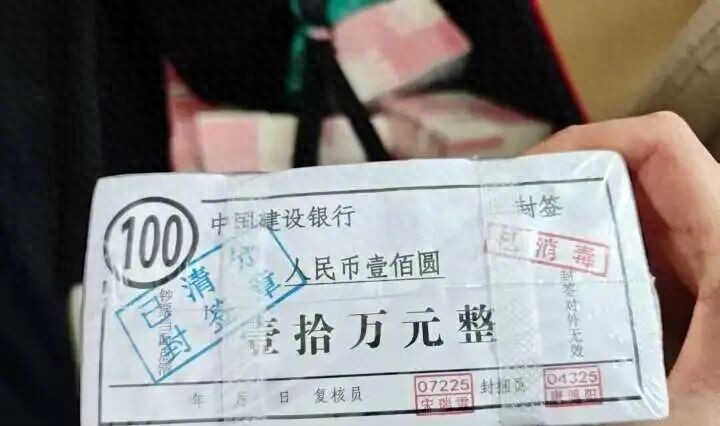 100
中国建设银行
封签
已消毒
人民币壹佰圆
已清
封签
壹拾万元整
封签对外无效
年 月 日 复核员 07225 封捆员 04325